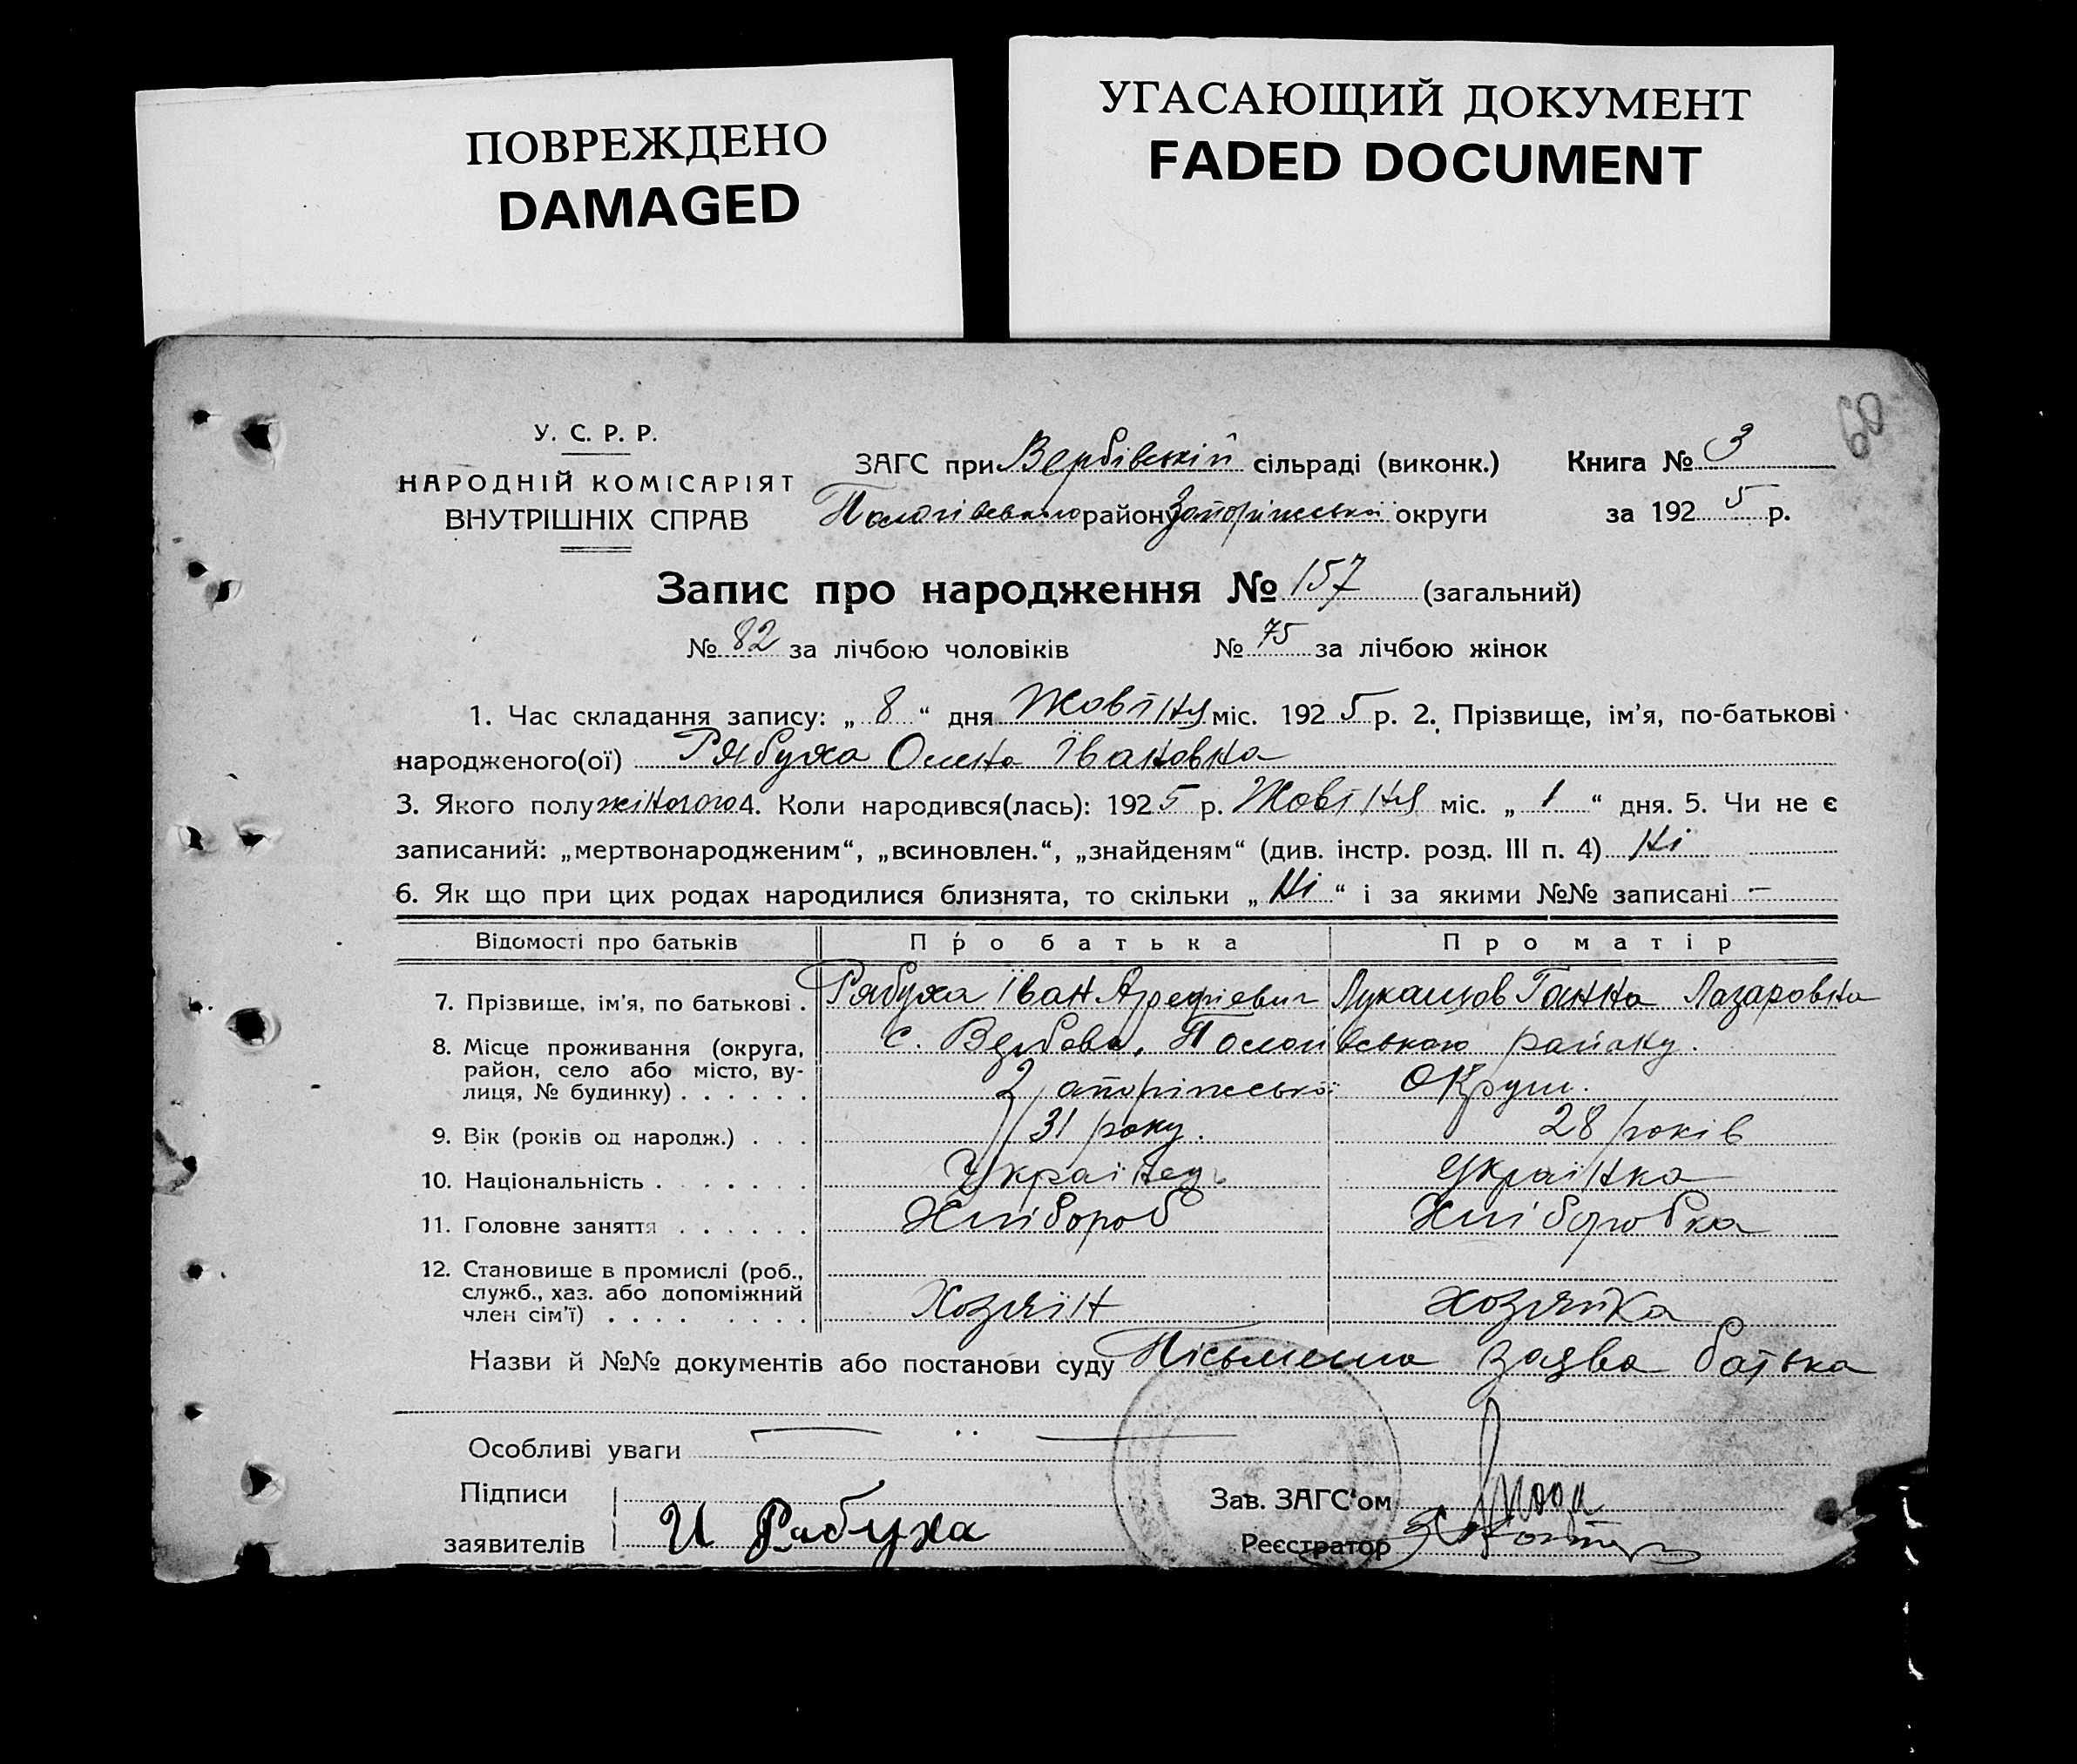 ПОВРЕЖДЕНО
DAMAGED
УГАСАЮЩИЙ ДОКУМЕНТ
FADED DOCUMENT
60
У. С. Р. Р.
НАРОДНІЙ КОМІСАРІЯТ
ВНУТРІШНІХ СПРАВ
ЗАГС при Вербівській сільраді (виконк.) Книга № 3
Пологівського району Запоріжської округи за 1925 р.
Запис про народження № 157 (загальний)
№ 82 за лічбою чоловіків № 75 за лічбою жінок
1. Час складання запису: „ 8 “ дня Жовтня міс. 1925 р. 2. Прізвище, ім’я, по-батькові
народженого(ої) Рябуха Олена Івановна
3. Якого полу жіночого 4. Коли народився(лась): 1925 р. Жовтня міс. „ 1 “ дня. 5. Чи не є
записаний: „мертвонародженим“, „всиновлен.“, „знайденям“ (див. інстр. розд. III п. 4) Ні
6. Як що при цих родах народилися близнята, то скільки „ Ні “ і за якими №№ записані —
Відомості про батьків Про батька Про матір
7. Прізвище, ім’я, по батькові . Рябуха Іван Лукашов Ганна Лазаровна
8. Місце проживання (округа, с. Вербова, Пологівського району.
район, село або місто, ву-
лиця, № будинку) . . . . . . Запоріжської Округи.
9. Вік (років од народж.) . . . 31 року. 28 років
10. Національність . . . . . . . Українець Українка
11. Головне заняття . . . . . . Хлібороб Хліборобка
12. Становище в промислі (роб.,
служб., хаз. або допоміжний Хозяїн хозяйка
член сім’ї) . . . . . . . .
Назви й №№ документів або постанови суду Пісьмена заява батька
Особливі уваги
Підписи
заявителів И Рабуха
Зав. ЗАГС‘ом
Реєстратор